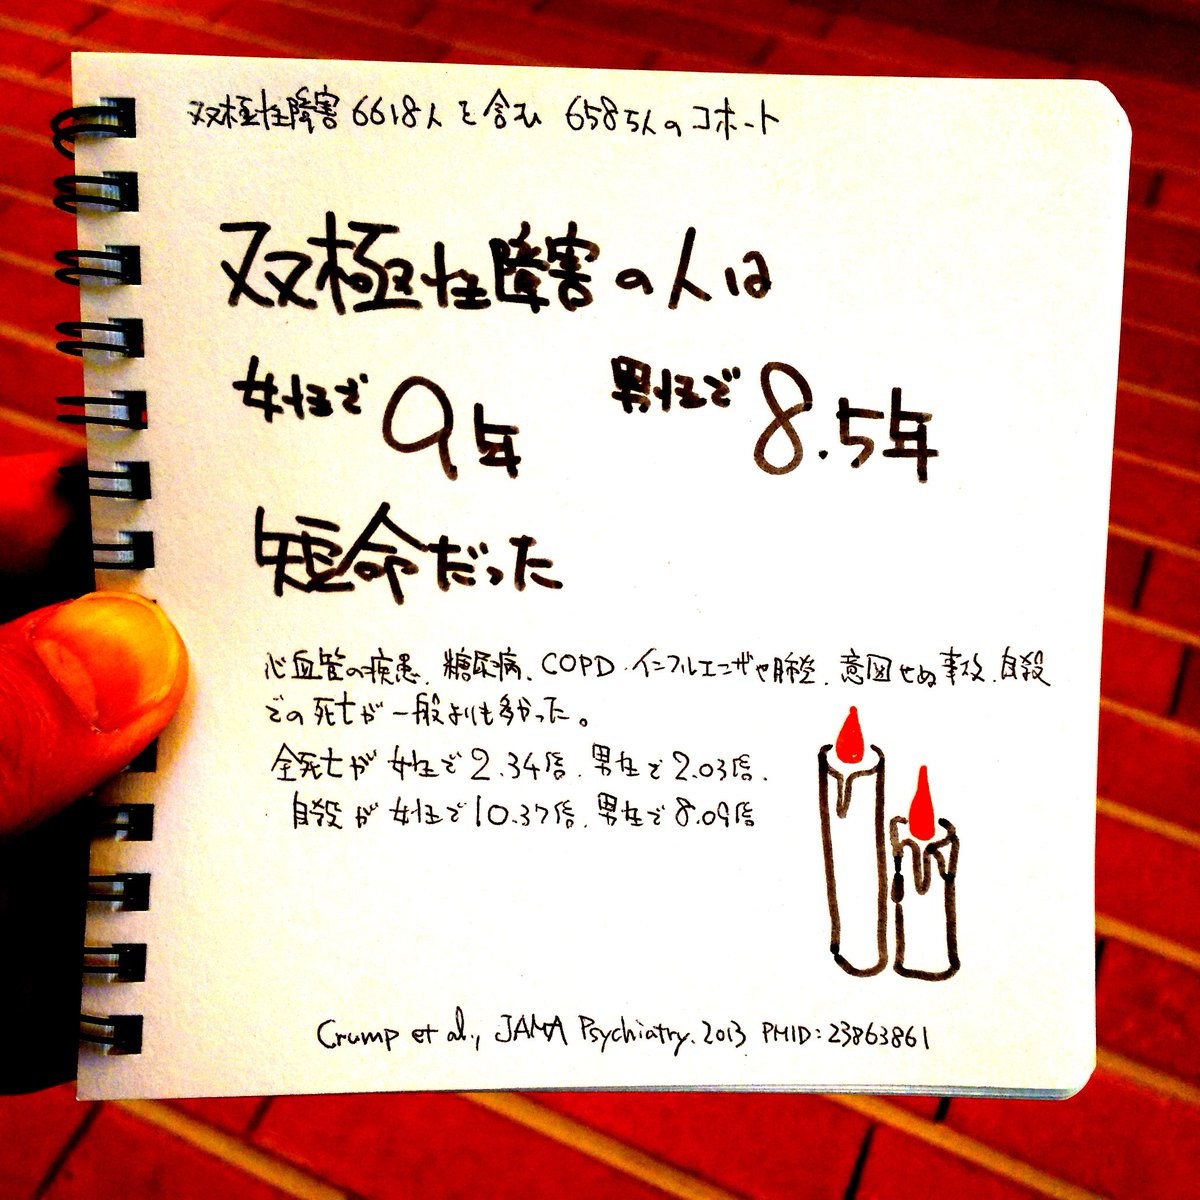 双極性障害6618人を含む 658万人のコホート
双極性障害の人は
女性で9年 男性で8.5年
短命だった
心血管の疾患、糖尿病、COPD、インフルエンザや肺炎、意図せぬ事故、自殺
での死亡が一般よりも多かった。
全死亡が女性で2.34倍、男性で2.03倍、
自殺が女性で10.37倍、男性で8.09倍
Crump et al., JAMA Psychiatry. 2013 PMID: 23863861